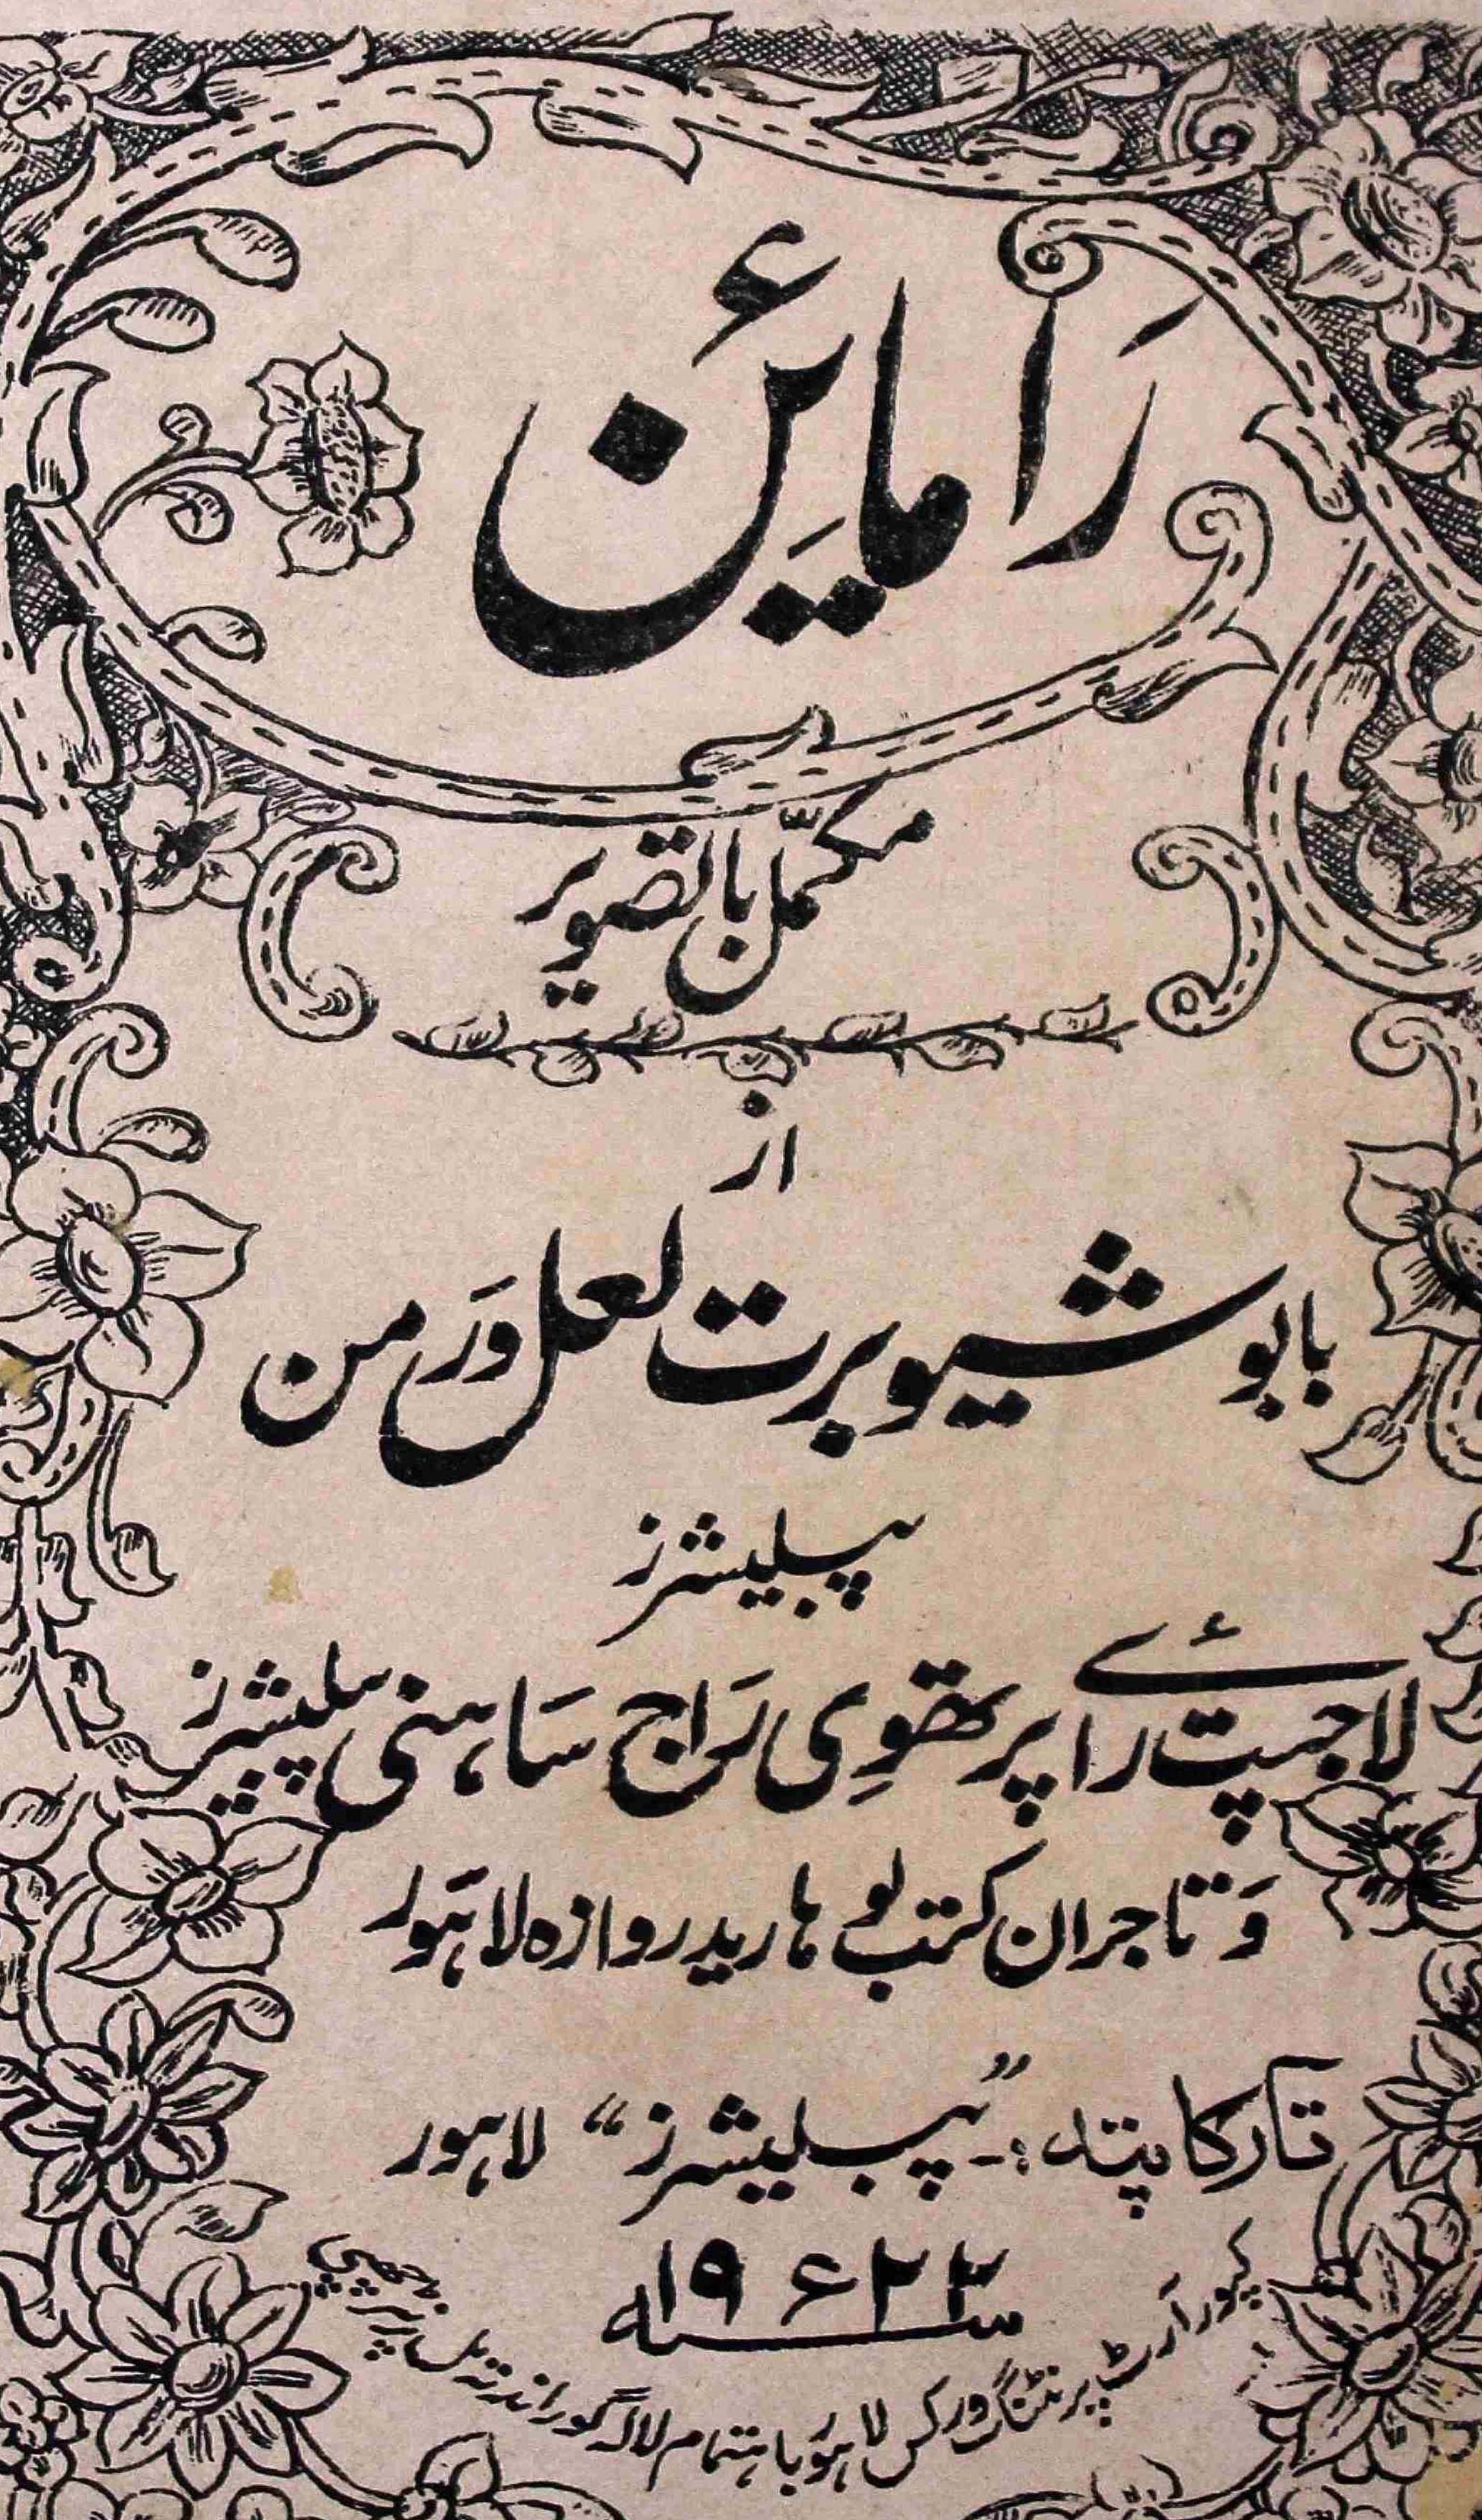 رامائین
مکمل بالتصویر
از
بابو شیوبرت لعل ورمن
پبلیشرز
لاجپت رائے پرتھوی راج ساہنی پبلیشرز
و تاجران کتب لوہاریدروازہ لاہور
تار کا پتہ :۔ "پبلیشرز" لاہور
کپور آرٹ پرنٹنگ ورکس لاہور باہتمام لالہ گوراندتہ مل